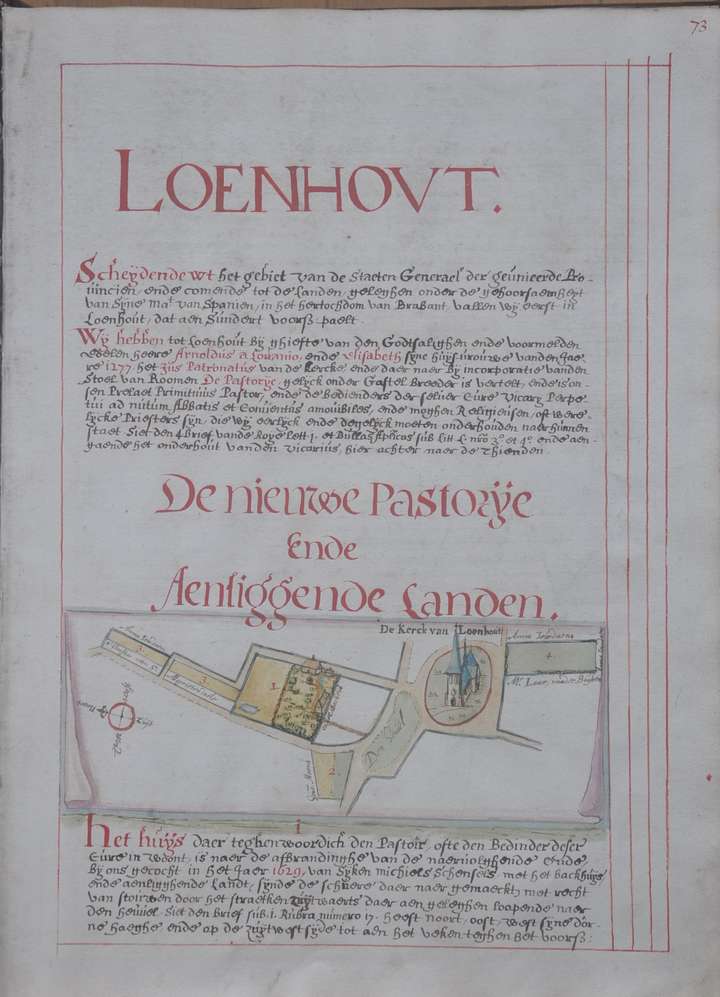 73
LOENHOVT.
Scheydende wt het gebiet van de Staeten Generael der geünieerde Pro-
üincien, ende comende tot de Landen, geleghen onder de gehoorsaemheyt
van Syne Mat van Spanien, in het hertochdom van Brabant, vallen wy eerst in
Loenhout, dat aen Sundert voorss paelt.
Wy hebben tot Loenhout by ghiefte van den Godtsalighen ende voormelden
Edelen heere Arnoldus a Lovanio, ende Elisabeth syne huysvrouwe vanden Jae-
re 1277, het Jus Patronatus van de Kercke ende daer naer by incorporatie vanden
Stoel van Roomen De Pastorye, gelyck onder Gastel Breeder is vertelt, ende is on-
sen Prelaet Primitiuus Pastor, ende de Bedienders der selver Cure Vicary Perpe-
tui ad nutum Abbatis et Conventus amovibiles, ende moghen Religieusen, oft were-
lycke Priesters syn, die wy eerlyck ende degelyck moeten onderhouden naer hunnen
staet. Siet den 4 brief vande Roye lett i. et Bullas Aplicas sub litt E. nro 3º et 4º ende aen-
gaende het onderhout vanden vicarius, hier achter naer de Thienden.
De nieuwe Pastorÿe
Ende
Aenliggende Landen.
De Kerck van Loenhout
3.
1.
4.
2.
Noort
Zuyt
West
i
Het huÿs daer teghenwoordich den Pastoir, ofte den Bedinder deser
Cure in woont, is naer de afbrandinghe van de naervolghende oude,
By ons gecocht in het Jaer 1629, van Syken Michiels Schensers met het backhuys
ende aenligghende Landt, synde de schuere daer naer gemaeckt, met recht
van stoirwen door het straetken zuÿtwaerts daer aen geleghen loopende naer
den heuvel. Siet den Brief sub. i. Rubra numero 17. heeft noort, oost, west syne dor-
ne haeghe ende op de zuÿtwest syde tot aen het veken teghen het voorss: